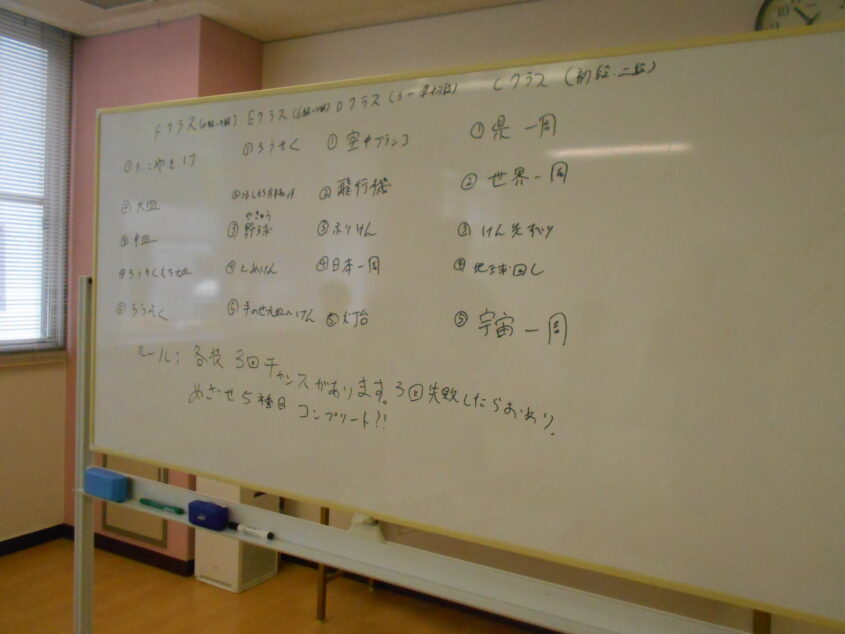 Fクラス Eクラス Dクラス Cクラス (初段・二段)
① ①ろうそく ①空中ブランコ ①県一周
②大皿 ② ②飛行機 ②世界一周
③中皿 ③野球 やきゅう ③ふりけん ③けん先すべり
④ろうそくもち大皿 ④とめけん ④日本一周 ④地球回し
⑤ろうそく ⑤手のせ大皿〜けん ⑤灯台 ⑤宇宙一周
ルール: 各技3回チャンスがあります。3回失敗したらおわり。
めざせ5種目コンプリート?!